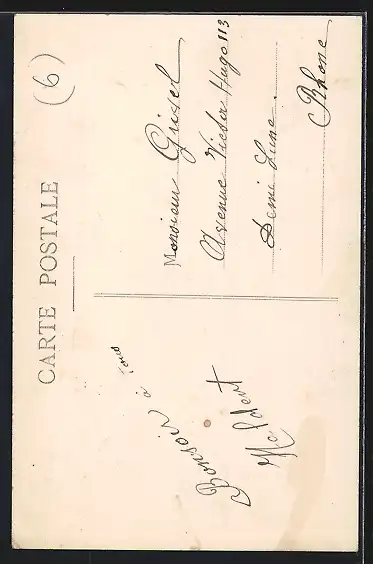 (6)
CARTE POSTALE
Bonsoir à tous
Monsieur Grisel
Avenue Victor Hugo 113
Demi Lune
Rhone